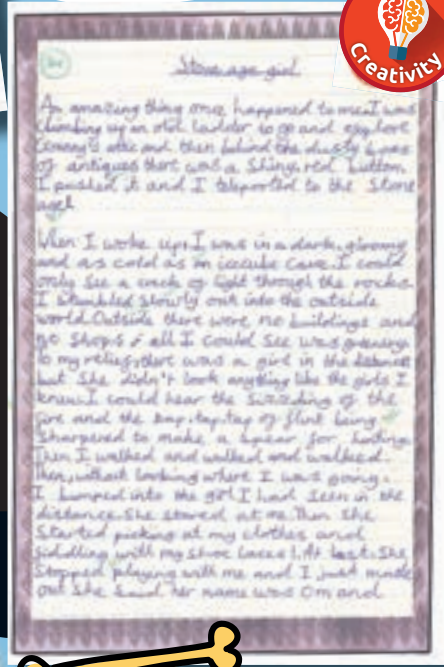 Creativity
Stone age girl
An amazing thing once happened to me. I was
climbing up an old ladder to go and explore
Granny's attic and then behind the dusty boxes
of antiques there was a shiny, red button.
I pushed it and I teleported to the Stone
age!
When I woke up, I was in a dark, gloomy
and as cold as an icecube cave. I could
only see a crack of light through the rocks.
I stumbled slowly out into the outside
world. Outside there were no buildings and
no shops, all I could see was greenery
to my relief, there was a girl in the distance
but she didn't look anything like the girls I
knew. I could hear the of the
fire and the tap, tap, tap of flint being
sharpened to make a spear for hunting.
Then I walked and walked and walked.
Then, without looking where I was going,
I bumped into the girl I had seen in the
distance. She stared at me. Then she
started picking at my clothes and
fiddling with my shoe laces!. At last, she
stopped playing with me and I just made
out she said her name was Om and